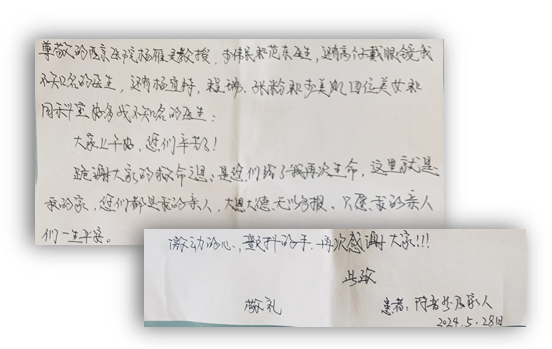 尊敬的西京医院杨雁灵教授,李伟民和范东医生,还有高个子戴眼镜我
不知名的医生,还有杨宜特、程娣、张粉和李美凤四位美女和
同科室好多我不知名的医生:
大家上午好,您们辛苦了!
跪谢大家的救命之恩,是您们给了我再次生命,这里就是
我的家,您们都是我的亲人,大恩大德无以为报,只愿我的亲人
们一生平安。
激动的心,颤抖的手,再次感谢大家!!!
此致
敬礼
患者:及家人
2024.5.28日